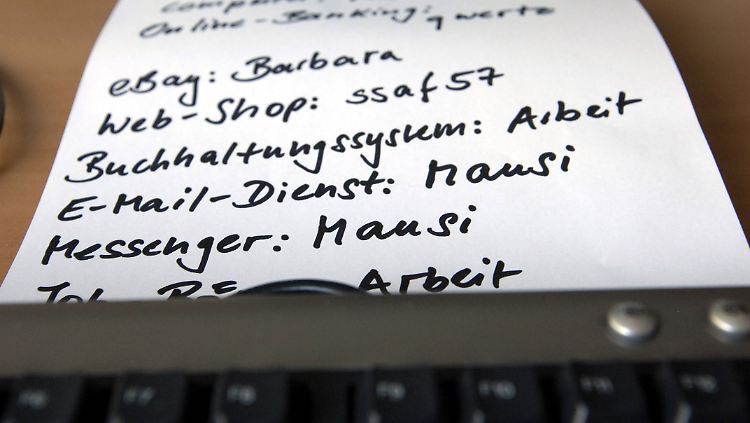 Online-Banking: qwertz
eBay: Barbara
Web-Shop: ssaf57
Buchhaltungssystem: Arbeit
E-Mail-Dienst: Mausi
Messenger: Mausi
Arbeit
F6 F7 F8 F9 F10 F11 F12